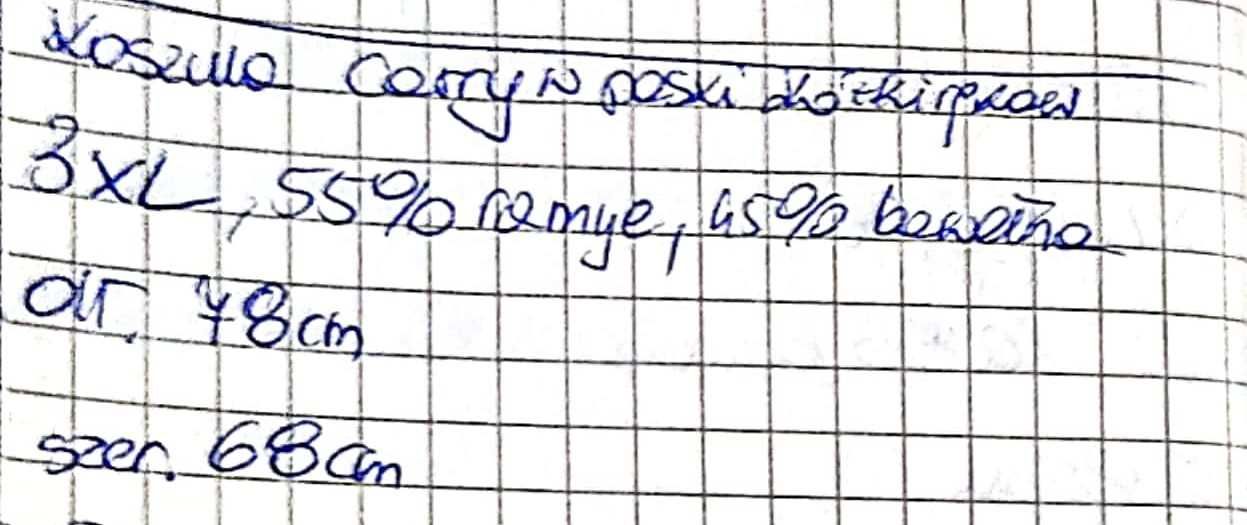 Koszula Carry w paski krótki rękaw
3XL, 55% ramye, 45% bawełna
dł. 78cm
szer. 68cm